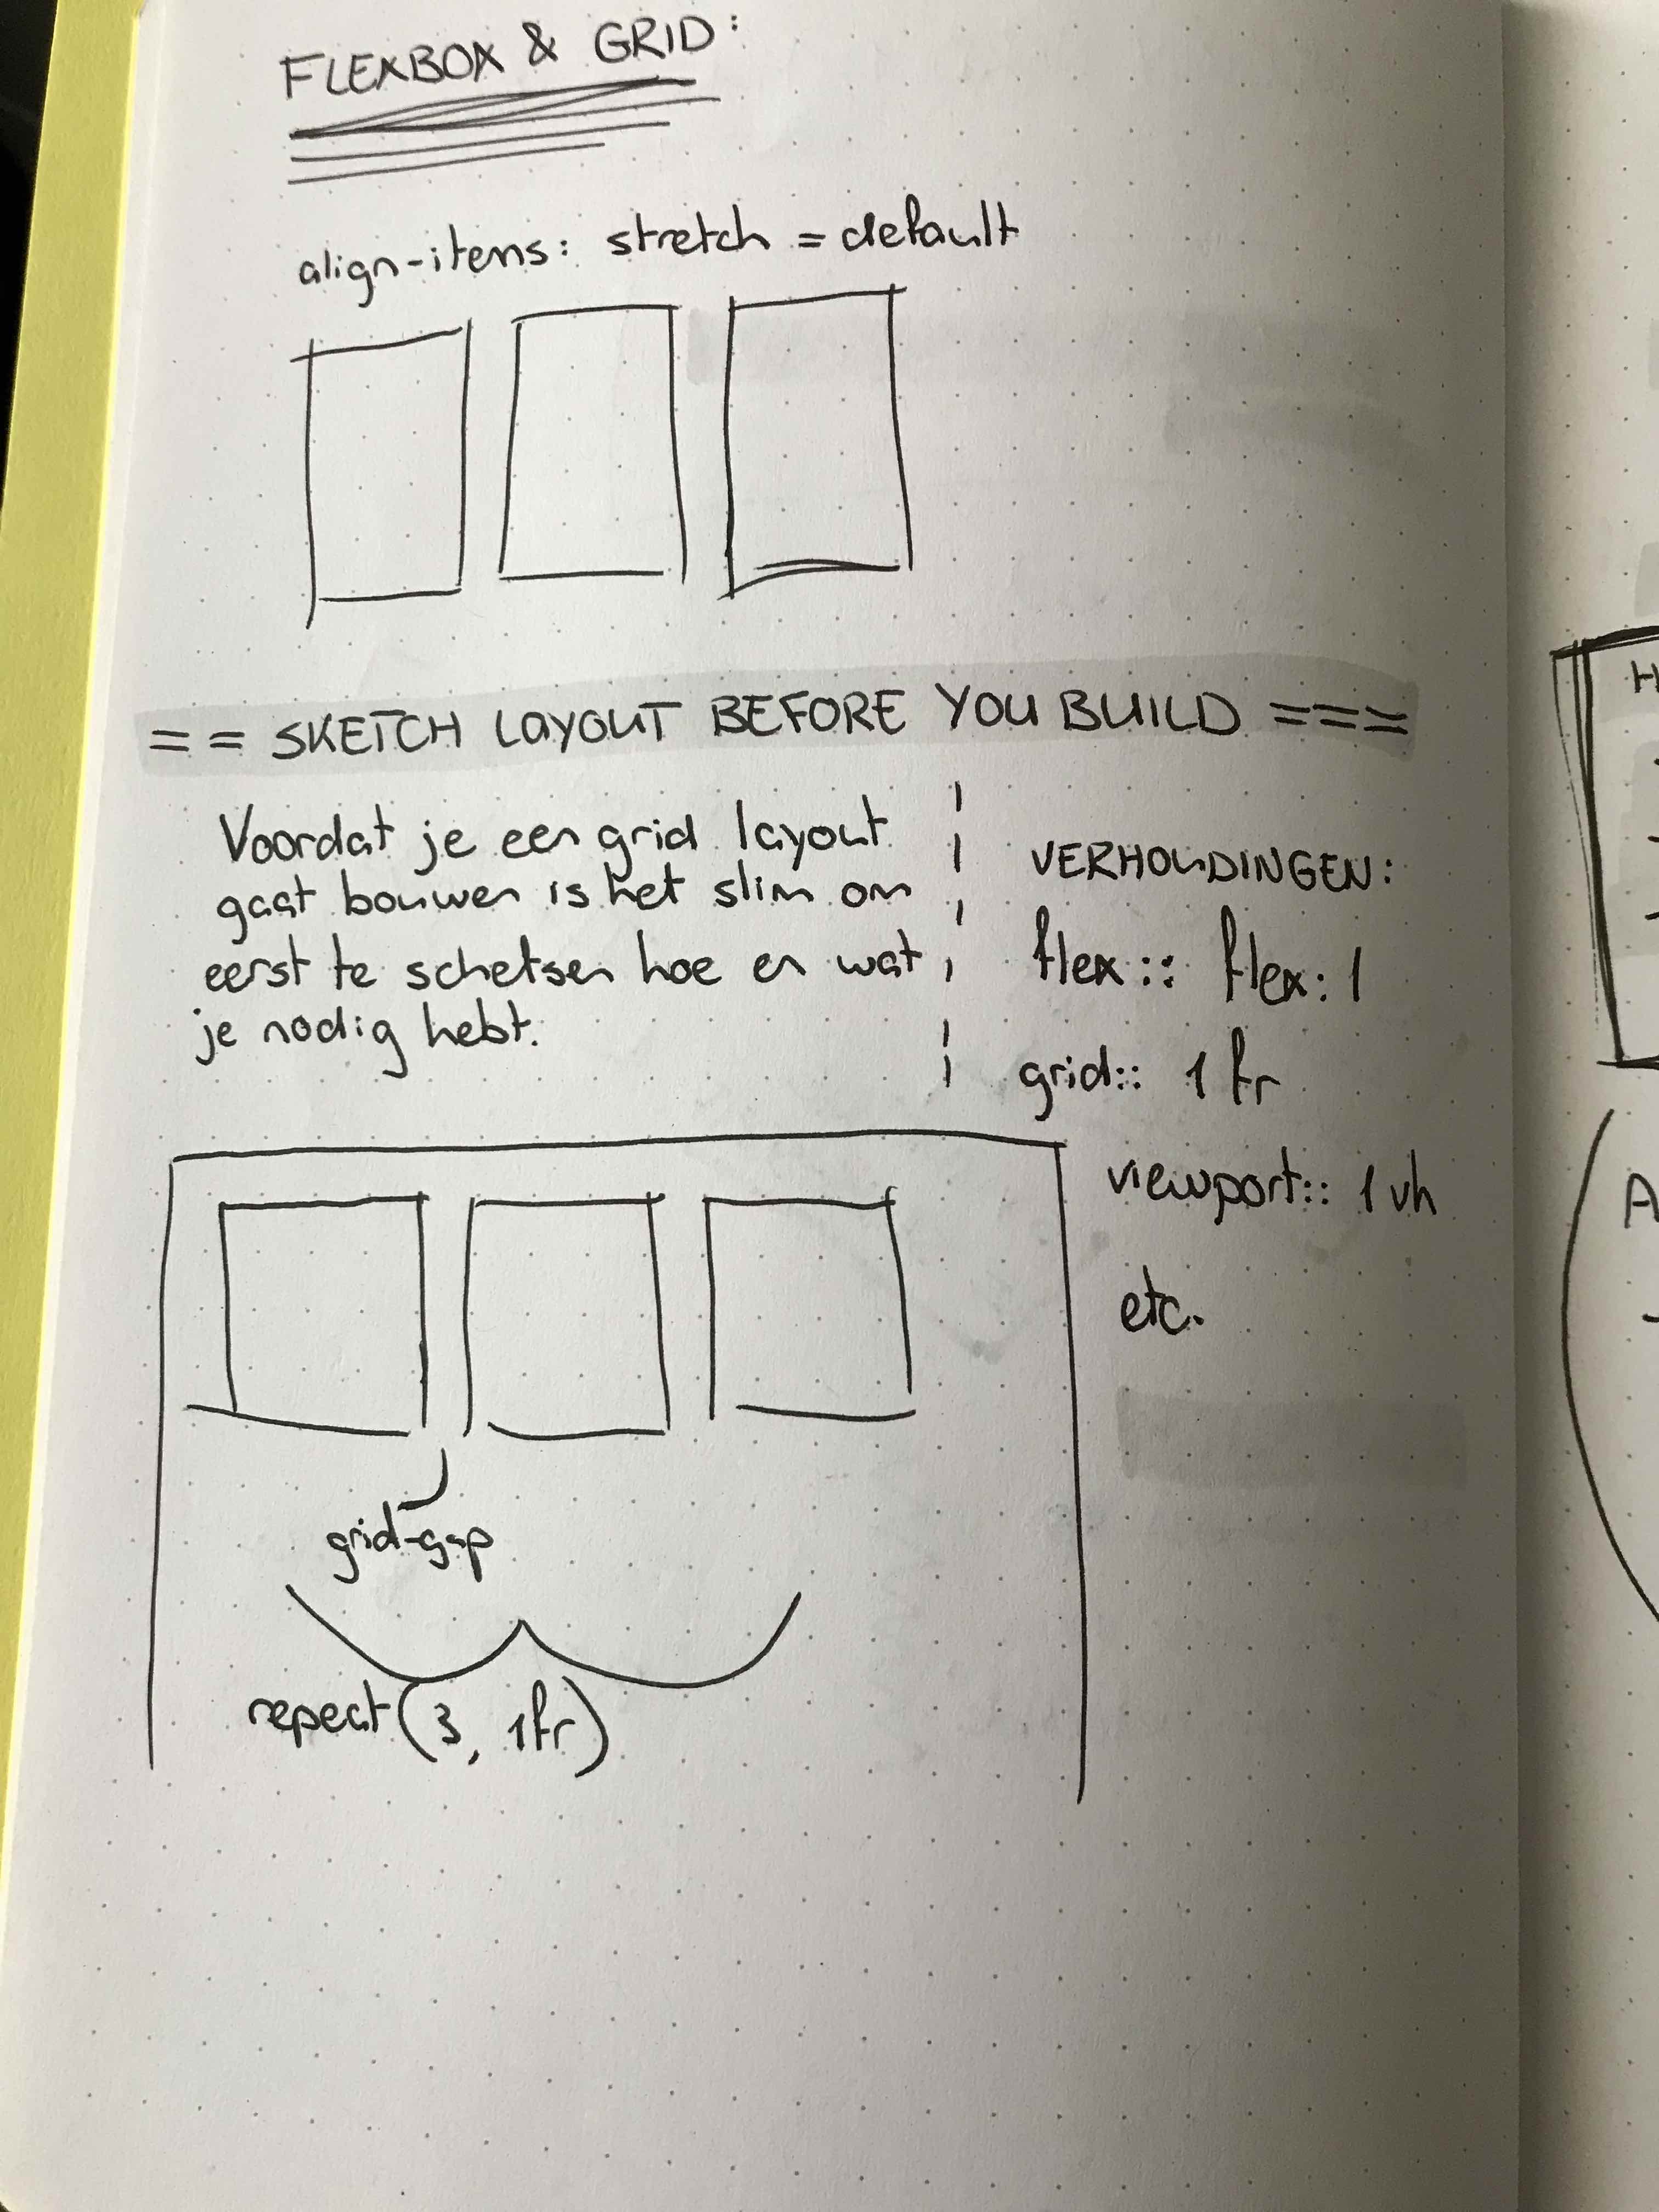 FLEXBOX & GRID:
align-items: stretch = default
== SKETCH LAYOUT BEFORE YOU BUILD ===
Voordat je een grid layout
gaat bouwen is het slim om
eerst te schetsen hoe en wat
je nodig hebt.
VERHOUDINGEN:
flex:: flex: 1
grid:: 1 fr
viewport:: 1 vh
etc.
grid-gap
repeat(3, 1fr)
H
A